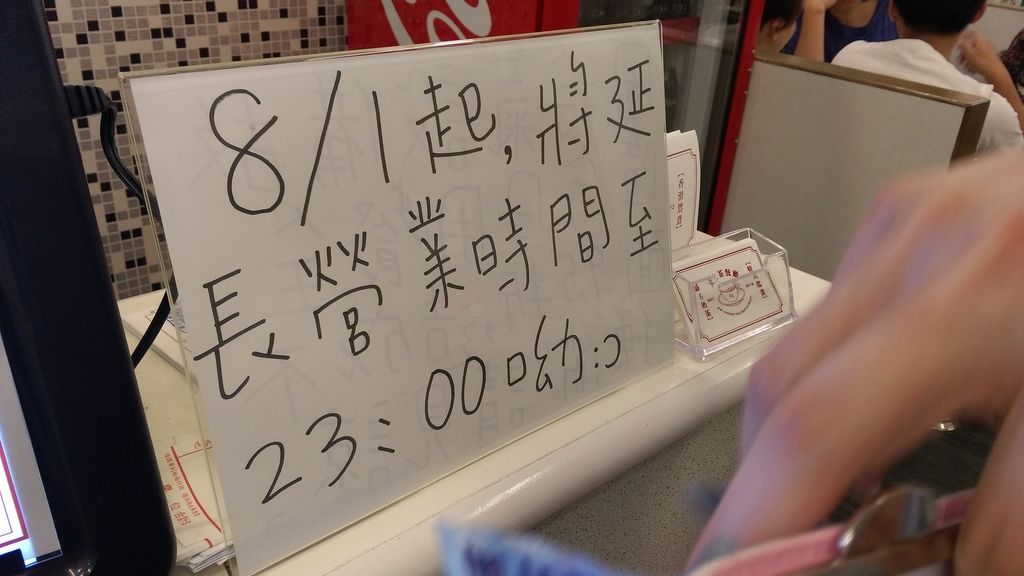 8/1起,將延
長營業時間至
23:00呦:)